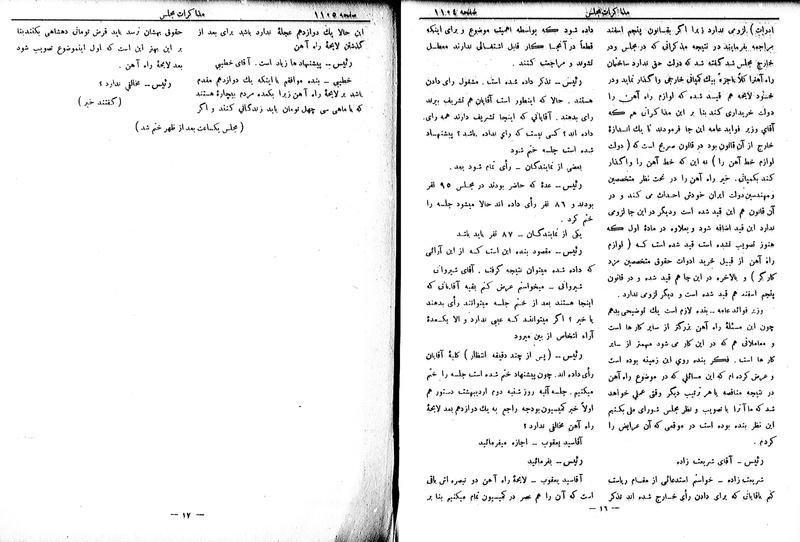 مذاکرات مجلس
صفحه ۱۱۰۴
ادوات) لزومی ندارد زیرا اگر بقسانون پنجم اسفند
مراجعه بفرمایند در نتیجه مذاکراتی که در مجلس ودر
خارج مجلس شد گفته شد که دولت حق ندارد ساختمان
راه آهن را کلا یا جزء بیك کمپانی خارجی واگذار نماید ودر
خود لایحه هم قید شده که لوازم راه آهن را
دولت خریداری کند بنا بر این مذاکراتی هم که
آقای وزیر فواید عامه این جا فرمودند تا یك اندازهٔ
خارج از آن قانون بود در قانون صریح است که ( دولت
لوازم خط آهن را ) نه این که خط آهن را واگذار
کند بکمپانی. خیر راه آهن را در تحت نظر متخصصین
ومهندسین دولت ایران خودش احداث می کند و در
آن قانون هم این قید شده است ودیگر در این جا لزومی
ندارد این قید اضافه شود و بعلاوه در مادهٔ اول که
هنوز تصویب نشده است قید شده است که ( لوازم
راه آهن از قبیل خرید ادوات حقوق متخصصین مزد
کارگر ) و بالاخره در این جا هم قید شده و در قانون
پنجم اسفند هم قید شده است و دیگر لزومی ندارد .
وزیر فوائد عامه - بنده لازم است یك توضیحی بدهم
چون این مسئلهٔ راه آهن بزرگتر از سایر کار ها است
و معاملاتی هم که در این کار می شود مهمتر از سایر
کار ها است . فکر بنده روی این زمینه بوده است
و عرض کرده ام که این مسائلی که در موضوع راه آهن
در نتیجه مناقصه یا هر ترتیب دیگر وقق عملی خواهد
شد که ما آنرا با تصویب و نظر مجلس شورای ملی بکنیم
این نظر بنده بوده است در موقعی که آن عرایض را
کردم .
رئیس - آقای شریعت زاده
شریعت زاده - خواستم استدعائی از مقام ریاست
کنم باقایانی که برای دادن رأی خارج شده اند تذکر
داده شود که بواسطه اهمیت موضوع و برای اینکه
قطعاً در آنجا کار قابل اشتغالی ندارند معطل
نشوند و مراجعت کنند .
رئیس - تذکر داده شده است . مشغول رای دادن
هستند . حالا که اینطور است آقایان هم تشریف ببرند
رأی بدهند . آقایانی که اینجا تشریف دارند همه رای
داده اند ؟ کسی نیست که رای نداده باشد ؟ پیشنهاد
شده است جلسه ختم شود
بعضی از نمایندگان - رأی تمام شود بعد .
رئیس - عدهٔ که حاضر بودند در مجلس ۹۵ نفر
بودند و ۸۶ نفر رأی داده اند حالا میشود جلسه را
ختم کرد .
یکی از نمایندگان - ۸۷ نفر باید باشد
رئیس - مقصود بنده این است که از این آرائی
که داده شده میتوان نتیجه گرفت . آقای شیروانی
شیروانی - میخواستم عرض کنم بقیه آقایانی که
اینجا هستند بعد از ختم جلسه میتوانند رأی بدهند
یا خیر ؟ اگر میتوانند که عیبی ندارد و الا یکعدهٔ
آراء اشخاص از بین میرود
رئیس - ( پس از چند دقیقه انتظار ) کلیهٔ آقایان
رأی داده اند. چون پیشنهاد ختم شده است جلسه را ختم
میکنیم . جلسه آتیه روز شنبه دوم اردیبهشت دستور هم
اولا خبر کمیسیون بودجه راجع به یك دوازدهم بعد لایحهٔ
راه آهن مخالفی ندارد ؟
آقاسید یعقوب - اجازه میفرمائید
رئیس - بفرمائید
آقاسید یعقوب - لایحهٔ راه آهن دو تبصره اش باقی
است که آن را هم عصر در کمیسیون تمام میکنیم بنا بر
- ۱۶ -
صفحه ۱۱۰۵
مذاکرات مجلس
این حالا یك دوازدهم عجلهٔ ندارد باشد برای بعد از
گذشتن لایحهٔ راه آهن
رئیس - پیشنهادها زیاد است . آقای خطیبی
خطیبی - بنده موافقم با اینکه یك دوازدهم مقدم
باشد بر لایحهٔ راه آهن زیرا یکعده مردم بیچارهٔ هستند
که با ماهی سی چهل تومان باید زندگانی کنند و اگر
حقوق بهشان نرسد باید قرض تومانی دهشاهی بکنند بنا
بر این بهتر این است که اول اینموضوع تصویب شود
بعد لایحهٔ راه آهن .
رئیس - مخالفی ندارد ؟
( گفتند خیر )
( مجلس یکساعت بعد از ظهر ختم شد )
- ۱۷ -